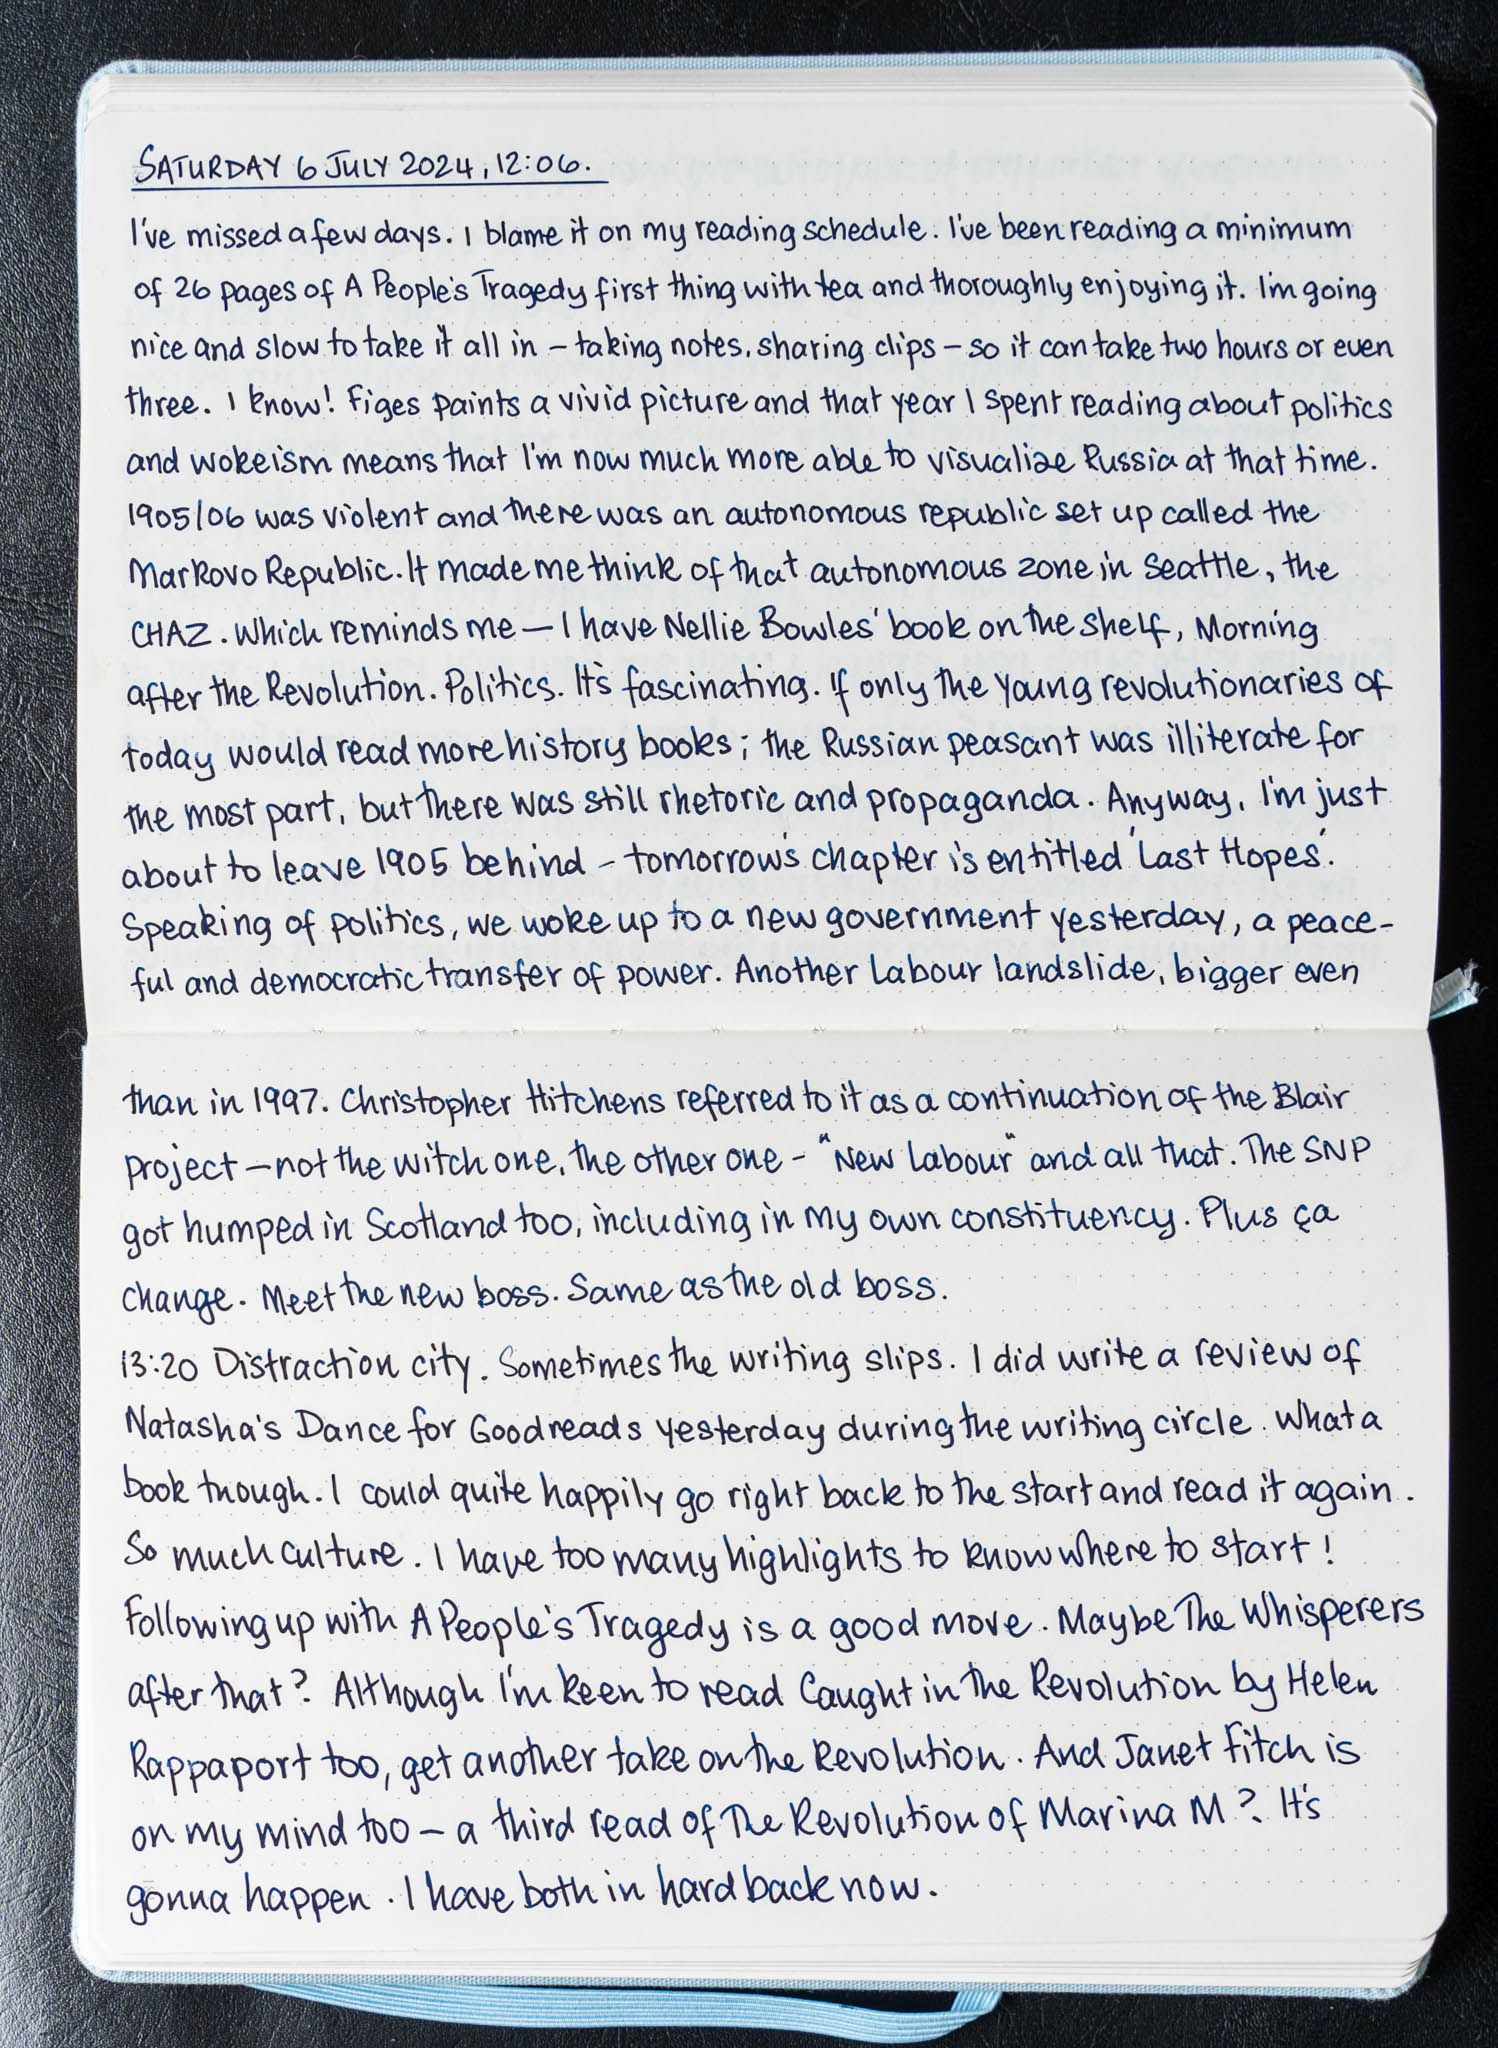 SATURDAY 6 JULY 2024, 12:06.
I've missed a few days. I blame it on my reading schedule. I've been reading a minimum
of 26 pages of A People's Tragedy first thing with tea and thoroughly enjoying it. I'm going
nice and slow to take it all in – taking notes, sharing clips – so it can take two hours or even
three. I know! Figes paints a vivid picture and that year I spent reading about politics
and wokeism means that I'm now much more able to visualize Russia at that time.
1905/06 was violent and there was an autonomous republic set up called the
Markovo Republic. It made me think of that autonomous zone in Seattle, the
CHAZ. Which reminds me — I have Nellie Bowles' book on the shelf, Morning
after the Revolution. Politics. It's fascinating. If only the young revolutionaries of
today would read more history books; the Russian peasant was illiterate for
the most part, but there was still rhetoric and propaganda. Anyway, I'm just
about to leave 1905 behind – tomorrow's chapter is entitled 'Last Hopes'.
Speaking of politics, we woke up to a new government yesterday, a peace-
ful and democratic transfer of power. Another Labour landslide, bigger even
than in 1997. Christopher Hitchens referred to it as a continuation of the Blair
project – not the witch one, the other one – "New Labour" and all that. The SNP
got humped in Scotland too, including in my own constituency. Plus ça
change. Meet the new boss. Same as the old boss.
13:20 Distraction city. Sometimes the writing slips. I did write a review of
Natasha's Dance for Goodreads yesterday during the writing circle. What a
book though. I could quite happily go right back to the start and read it again.
So much culture. I have too many highlights to know where to start!
Following up with A People's Tragedy is a good move. Maybe The Whisperers
after that? Although I'm keen to read Caught in the Revolution by Helen
Rappaport too, get another take on the Revolution. And Janet Fitch is
on my mind too – a third read of The Revolution of Marina M? It's
gonna happen. I have both in hardback now.